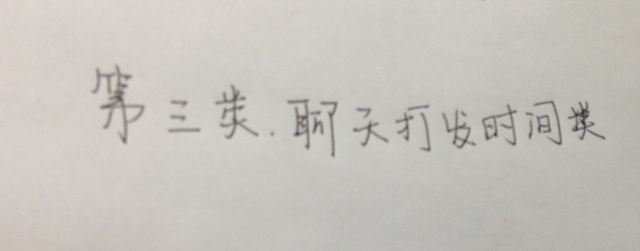 第三类.聊天打发时间类